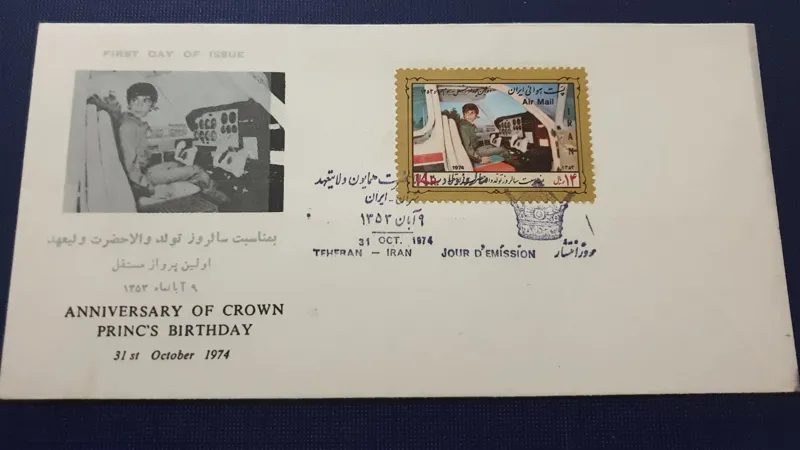 FIRST DAY OF ISSUE
بمناسبت سالروز تولد والاحضرت ولیعهد
اولین پرواز مستقل
۹ آبانماه ۱۳۵۳
ANNIVERSARY OF CROWN
PRINC'S BIRTHDAY
31 st October 1974
پست هوائی ایران
Air Mail
IRAN
1974
۱۳۵۳
14R
۱۴ ریال
همایون ولایتعهد
ایران
۹ آبان ۱۳۵۳
31 OCT. 1974
TEHERAN - IRAN
JOUR D'EMISSION
روز انتشار